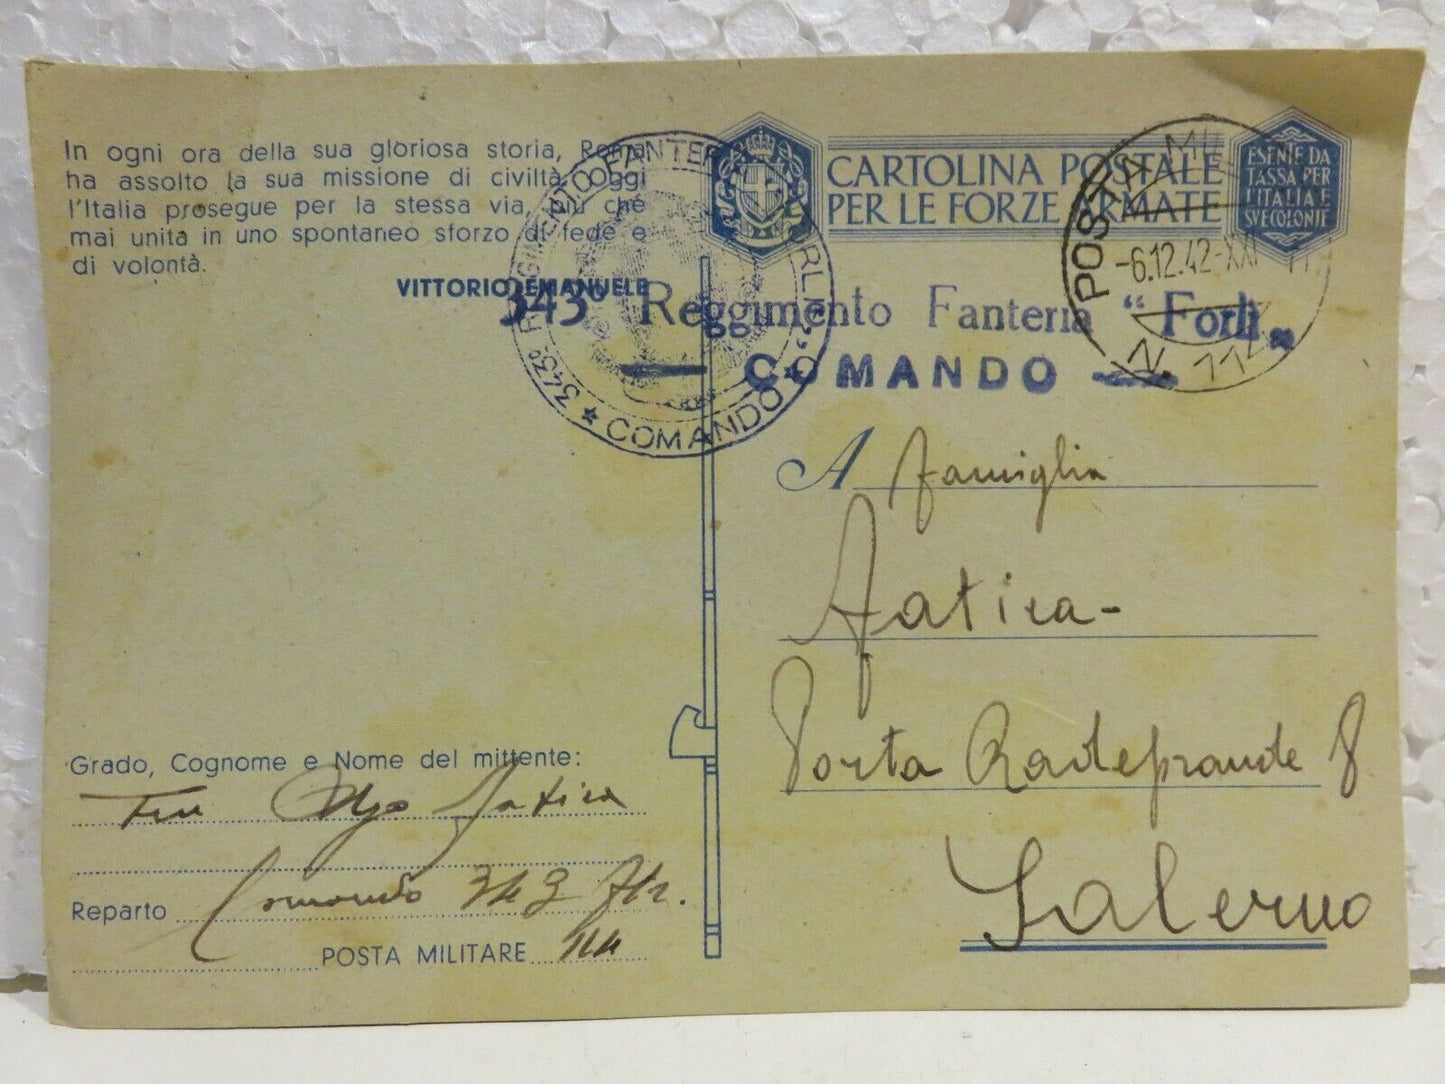 In ogni ora della sua gloriosa storia, Roma
ha assolto la sua missione di civiltà. Oggi
l'Italia prosegue per la stessa via, più che
mai unita in uno spontaneo sforzo di fede e
di volontà.
VITTORIO EMANUELE
CARTOLINA POSTALE
PER LE FORZE ARMATE
ESENTE DA
TASSA PER
L'ITALIA E
SVE COLONIE
343º REGGIMENTO FANTERIA "FORLÌ"
★ COMANDO ★
POSTA MILITARE
-6.12.42-XXI
N. 114
343º Reggimento Fanteria "Forlì"
— COMANDO —
A famiglia
Fatica-
Porta Radeprande 8
Salerno
Grado, Cognome e Nome del mittente:
Ten Fatica
Reparto Comando 343 Ftr.
POSTA MILITARE 114